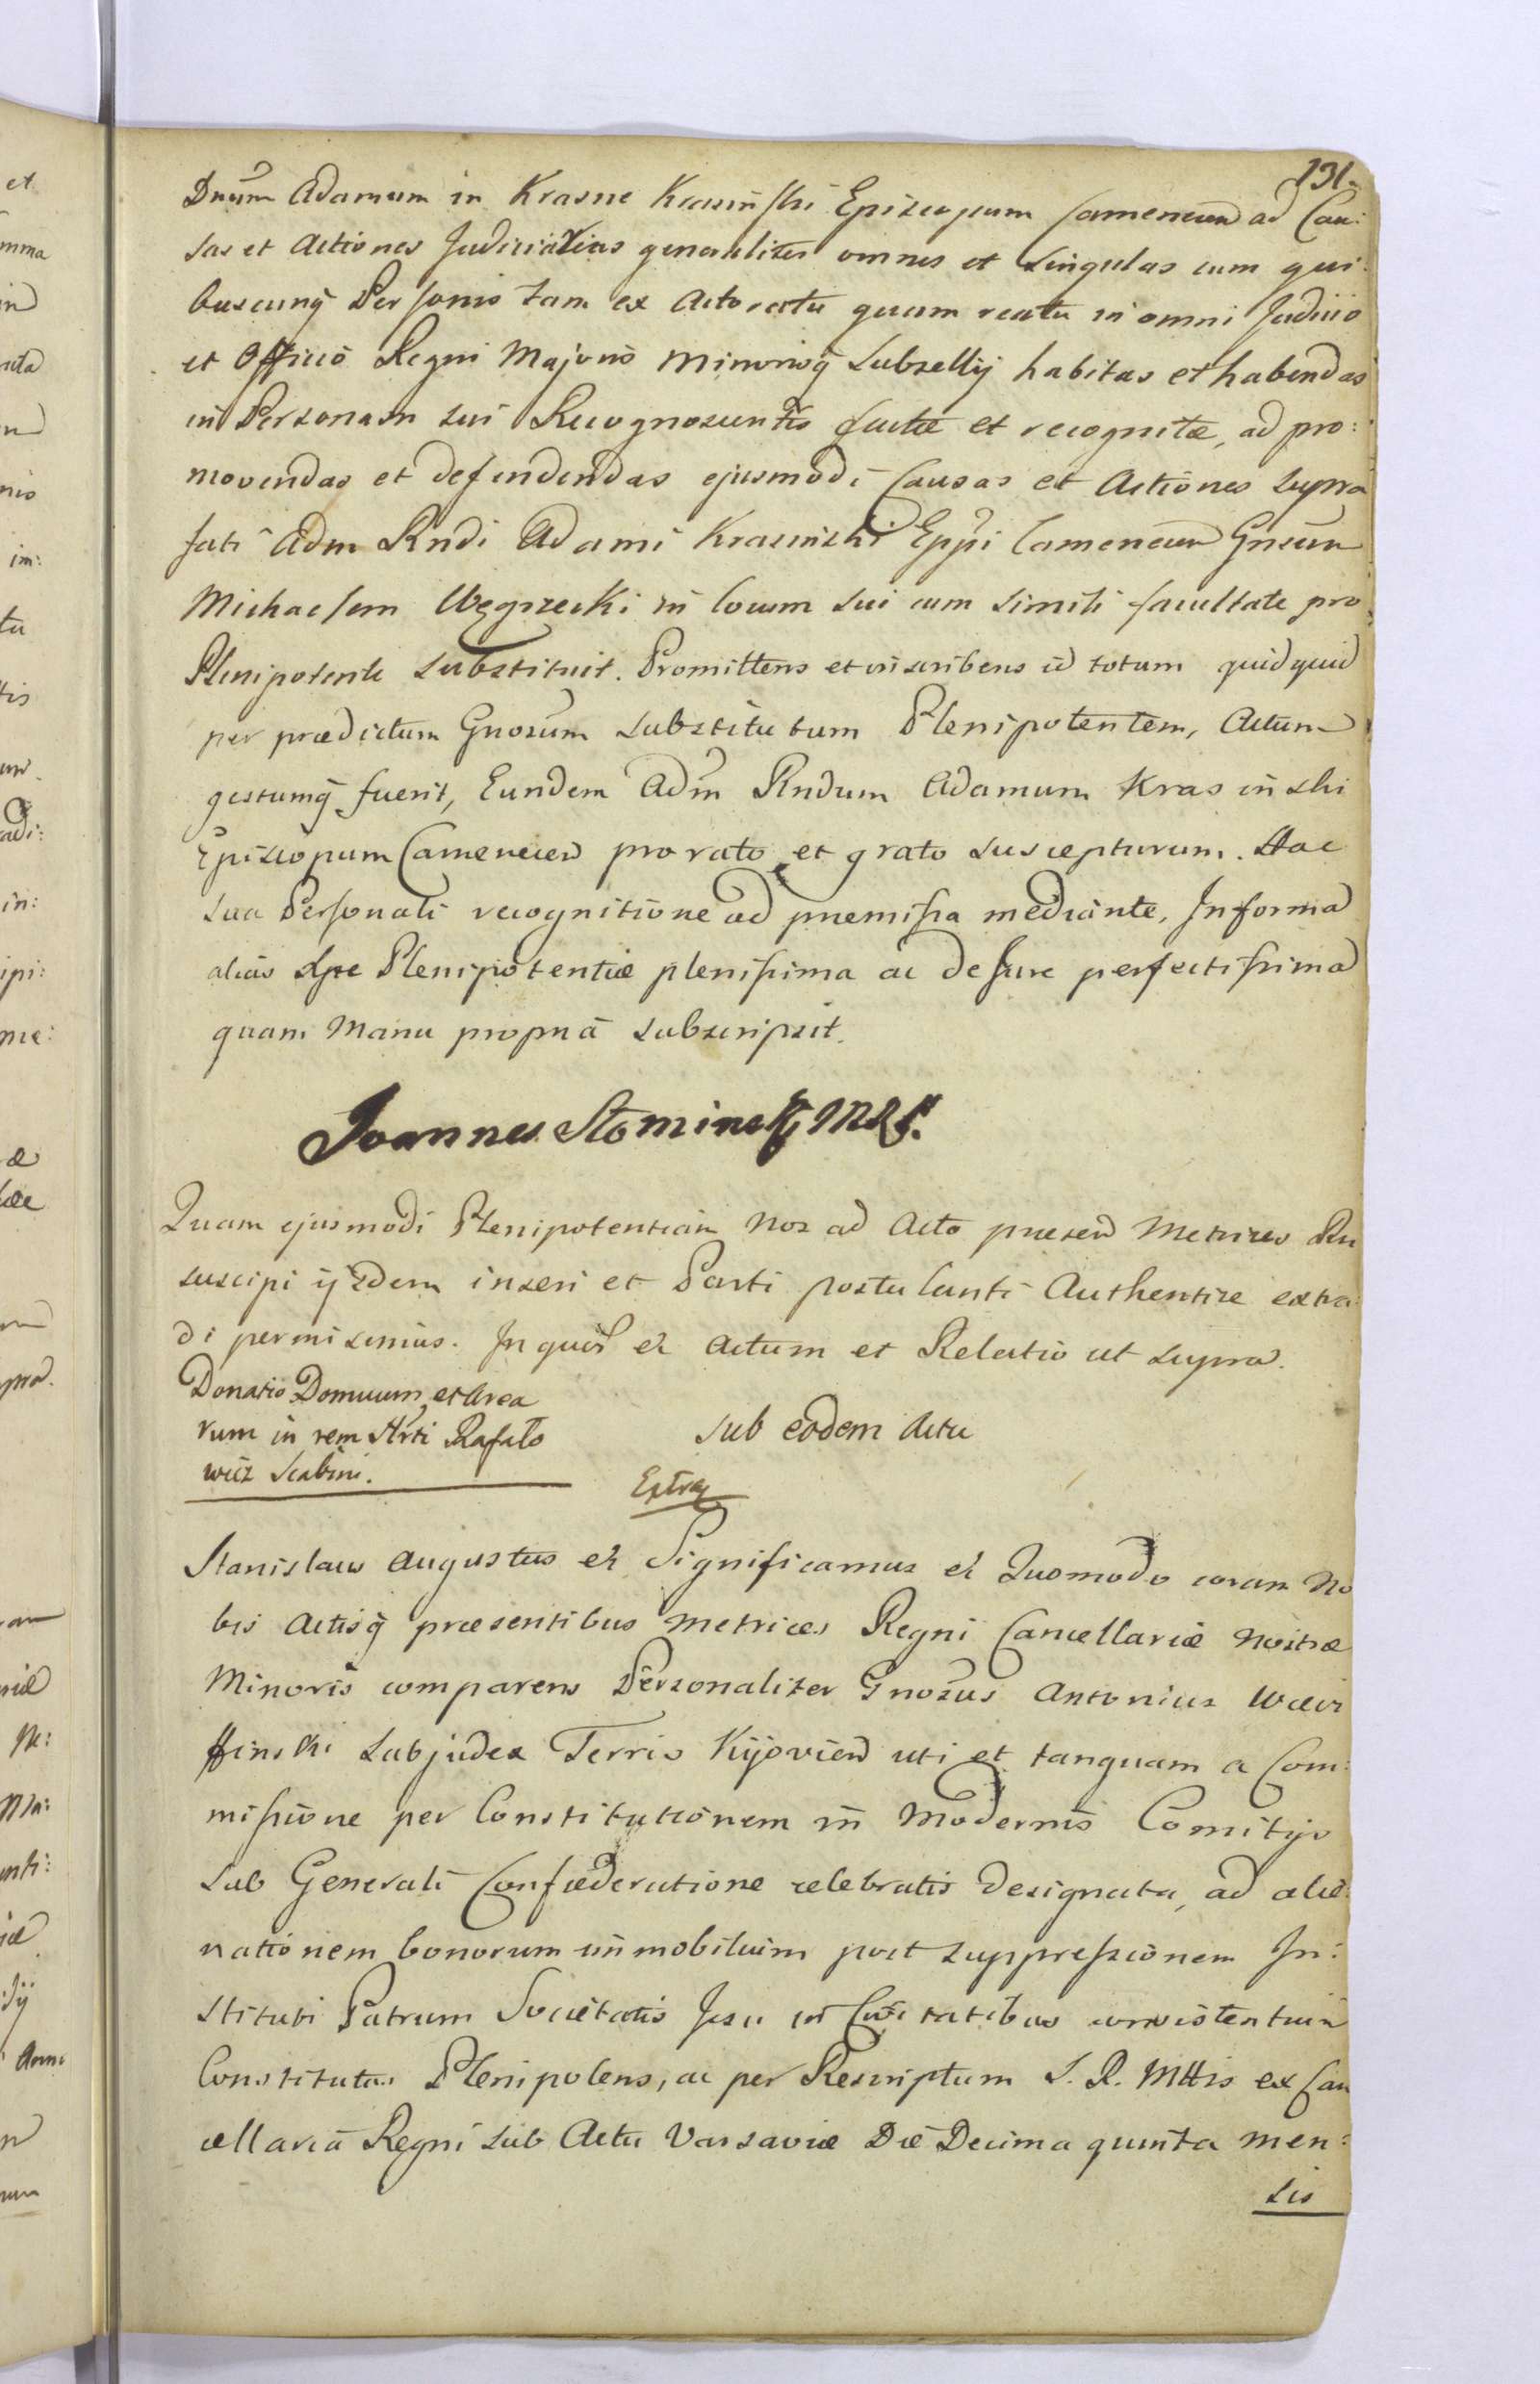 131.
Dnum Adamum in Krasne Krasinski Episcopum Camenecen ad Cau:
sas et Actiones Judiciarias generaliter omnes et singulas cum qui:
buscunq Personis tam ex Actoratu quam reatu in omni Judicio
et Officio Regni Majoris Minorisq Subsellij habitas et habendas
in Personam sui Recognoscentis factæ et recognitæ, ad pro:
movendas et defendendas ejusmodi Causas et Actiones supra
fati Adm Rndi Adami Krasinski Eppi Camenecen Gnsum
Michaelem Węgrzecki in locum sui cum simili facultate pro
Plenipotente substituit. Promittens et inscribens id totum quidquid
per prædictum Gnosum substitutum Plenipotentem, Actum
gestumq fuerit, Eundem Adm Rndum Adamum Krasinski
Episcopum Camenecen pro rato et grato suscepturum. Hac
sua Personali recognitione ad præmissa mediante, In forma
alias Plenipotentiæ plenissima ac de Jure perfectissima
quam Manu propria subscripsit.
Joannes
Quam ejusmodi Plenipotentiam Nos ad Acta præsen Metrices Rni
suscipi ijsdem inseri et Parti postulanti Authentice extra:
di permisimus. In quor et Actum et Relatio ut supra.
Donatio Domuum et Area
rum in rem Rafało
wicz Scabini.
Sub eodem Actu
Extrad
Stanislaus Augustus et Significamus et Quomodo coram No
bis Actisq præsentibus Metrices Regni Cancellariæ Nostræ
Minoris comparens Personaliter Gnosus Antonius
Subjudex Terris Kijovien uti et tanquam a Com:
missione per Constitutionem in Modernis Comitijs
sub Generali Confæderatione celebratis designata, ad alie:
nationem bonorum immobilium post suppressionem In:
stituti Patrum Societatis Jesu in Civitatibus consistentium
Constitutus Plenipotens, ac per Rescriptum S. R. Mttis ex Can
cellaria Regni sub Actu Varsaviæ Die Decima quinta Men:
sis